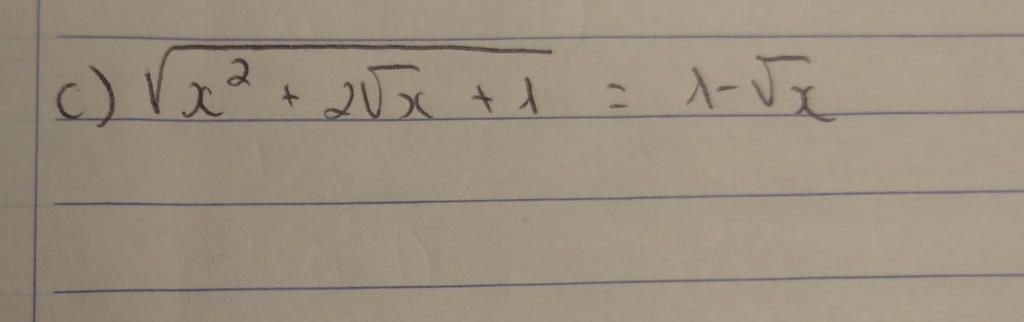 c) √(x² + 2√x + 1) = 1-√x